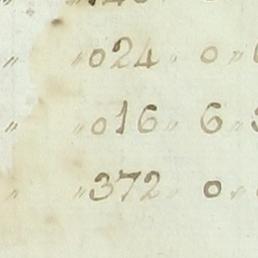 " " 024 " 0 "
" " 016 " 6
" " 372 " 0 "